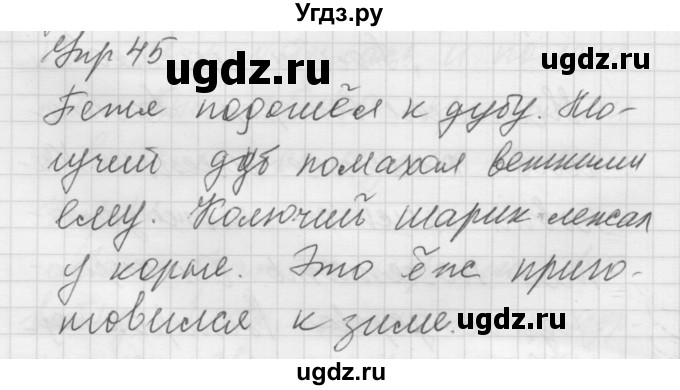 Угдз.ру
Упр 45
ugdz.ru ugdz.ru
Петя подошёл к дубу. Мо-
гучий дуб помахал ветками
ему. Колючий шарик лежал
у корые. Это ёж приго-
товился к зиме.
ugdz.ru
ugdz.ru ugdz.ru